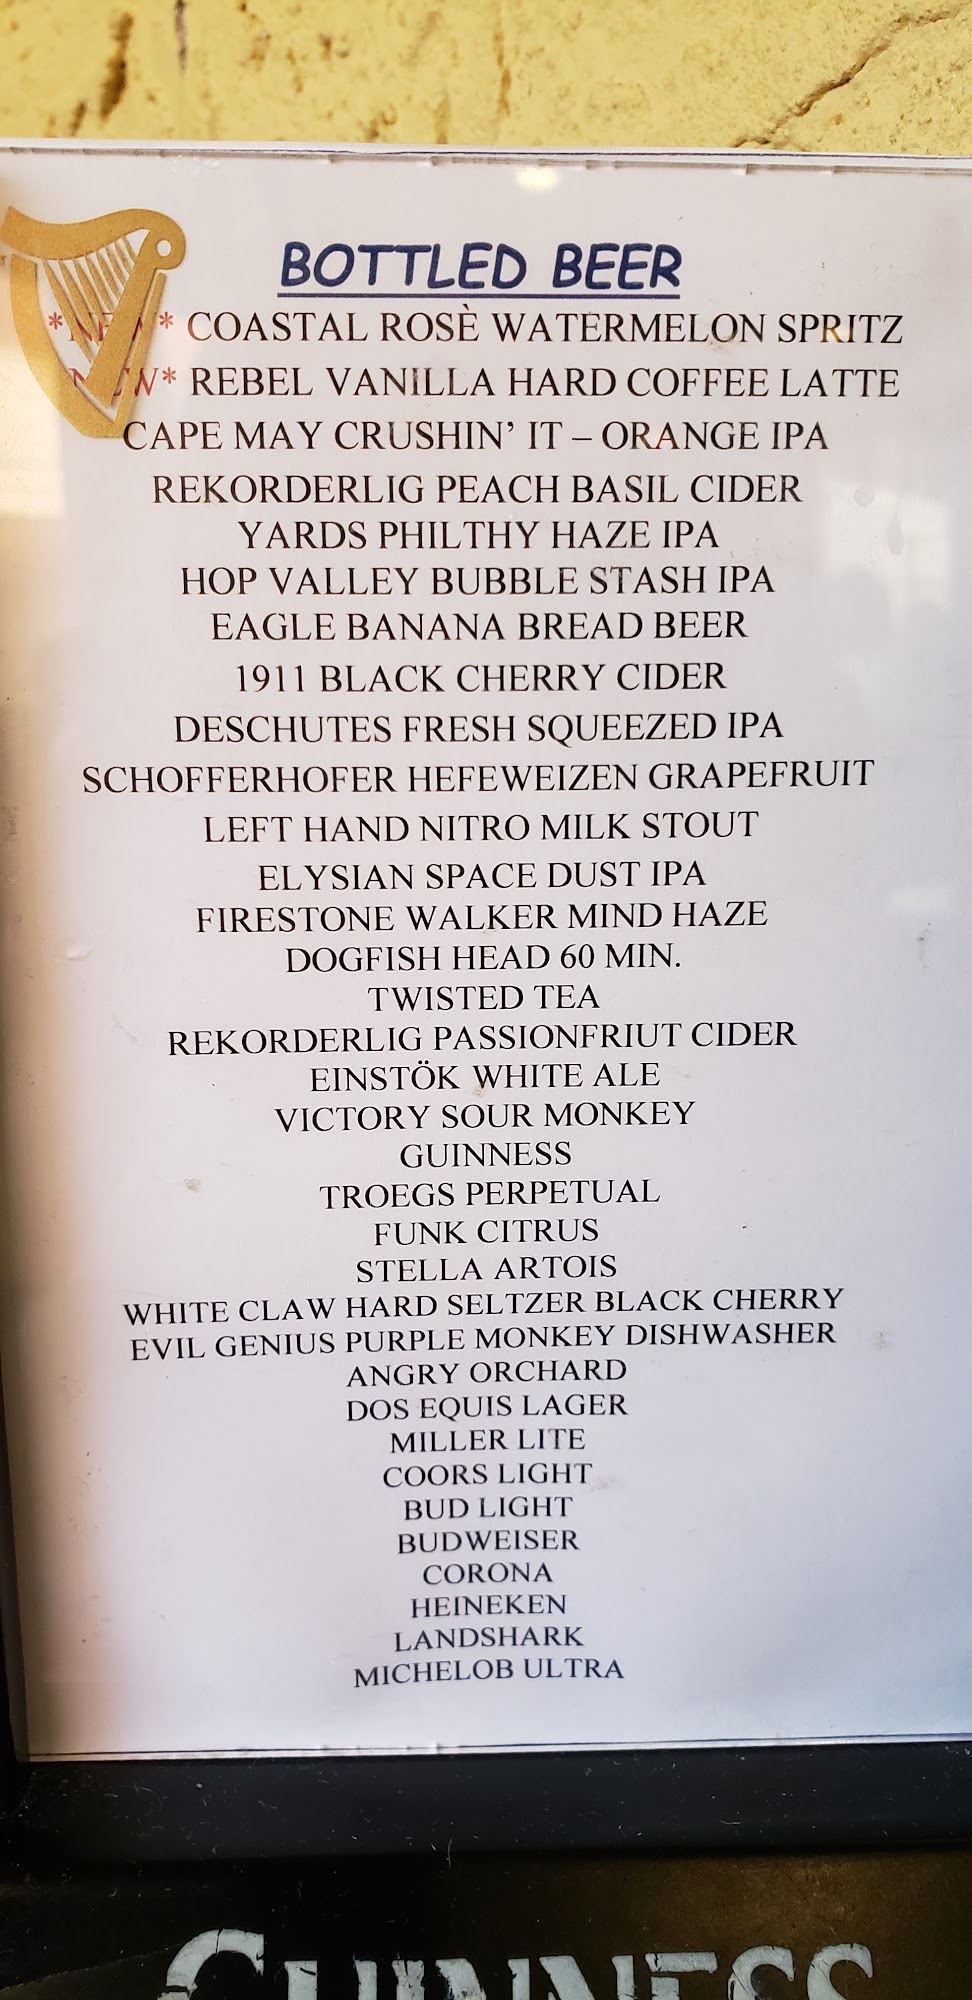 BOTTLED BEER
*NEW* COASTAL ROSÈ WATERMELON SPRITZ
NEW* REBEL VANILLA HARD COFFEE LATTE
CAPE MAY CRUSHIN’ IT – ORANGE IPA
REKORDERLIG PEACH BASIL CIDER
YARDS PHILTHY HAZE IPA
HOP VALLEY BUBBLE STASH IPA
EAGLE BANANA BREAD BEER
1911 BLACK CHERRY CIDER
DESCHUTES FRESH SQUEEZED IPA
SCHOFFERHOFER HEFEWEIZEN GRAPEFRUIT
LEFT HAND NITRO MILK STOUT
ELYSIAN SPACE DUST IPA
FIRESTONE WALKER MIND HAZE
DOGFISH HEAD 60 MIN.
TWISTED TEA
REKORDERLIG PASSIONFRIUT CIDER
EINSTÖK WHITE ALE
VICTORY SOUR MONKEY
GUINNESS
TROEGS PERPETUAL
FUNK CITRUS
STELLA ARTOIS
WHITE CLAW HARD SELTZER BLACK CHERRY
EVIL GENIUS PURPLE MONKEY DISHWASHER
ANGRY ORCHARD
DOS EQUIS LAGER
MILLER LITE
COORS LIGHT
BUD LIGHT
BUDWEISER
CORONA
HEINEKEN
LANDSHARK
MICHELOB ULTRA
GUINNESS